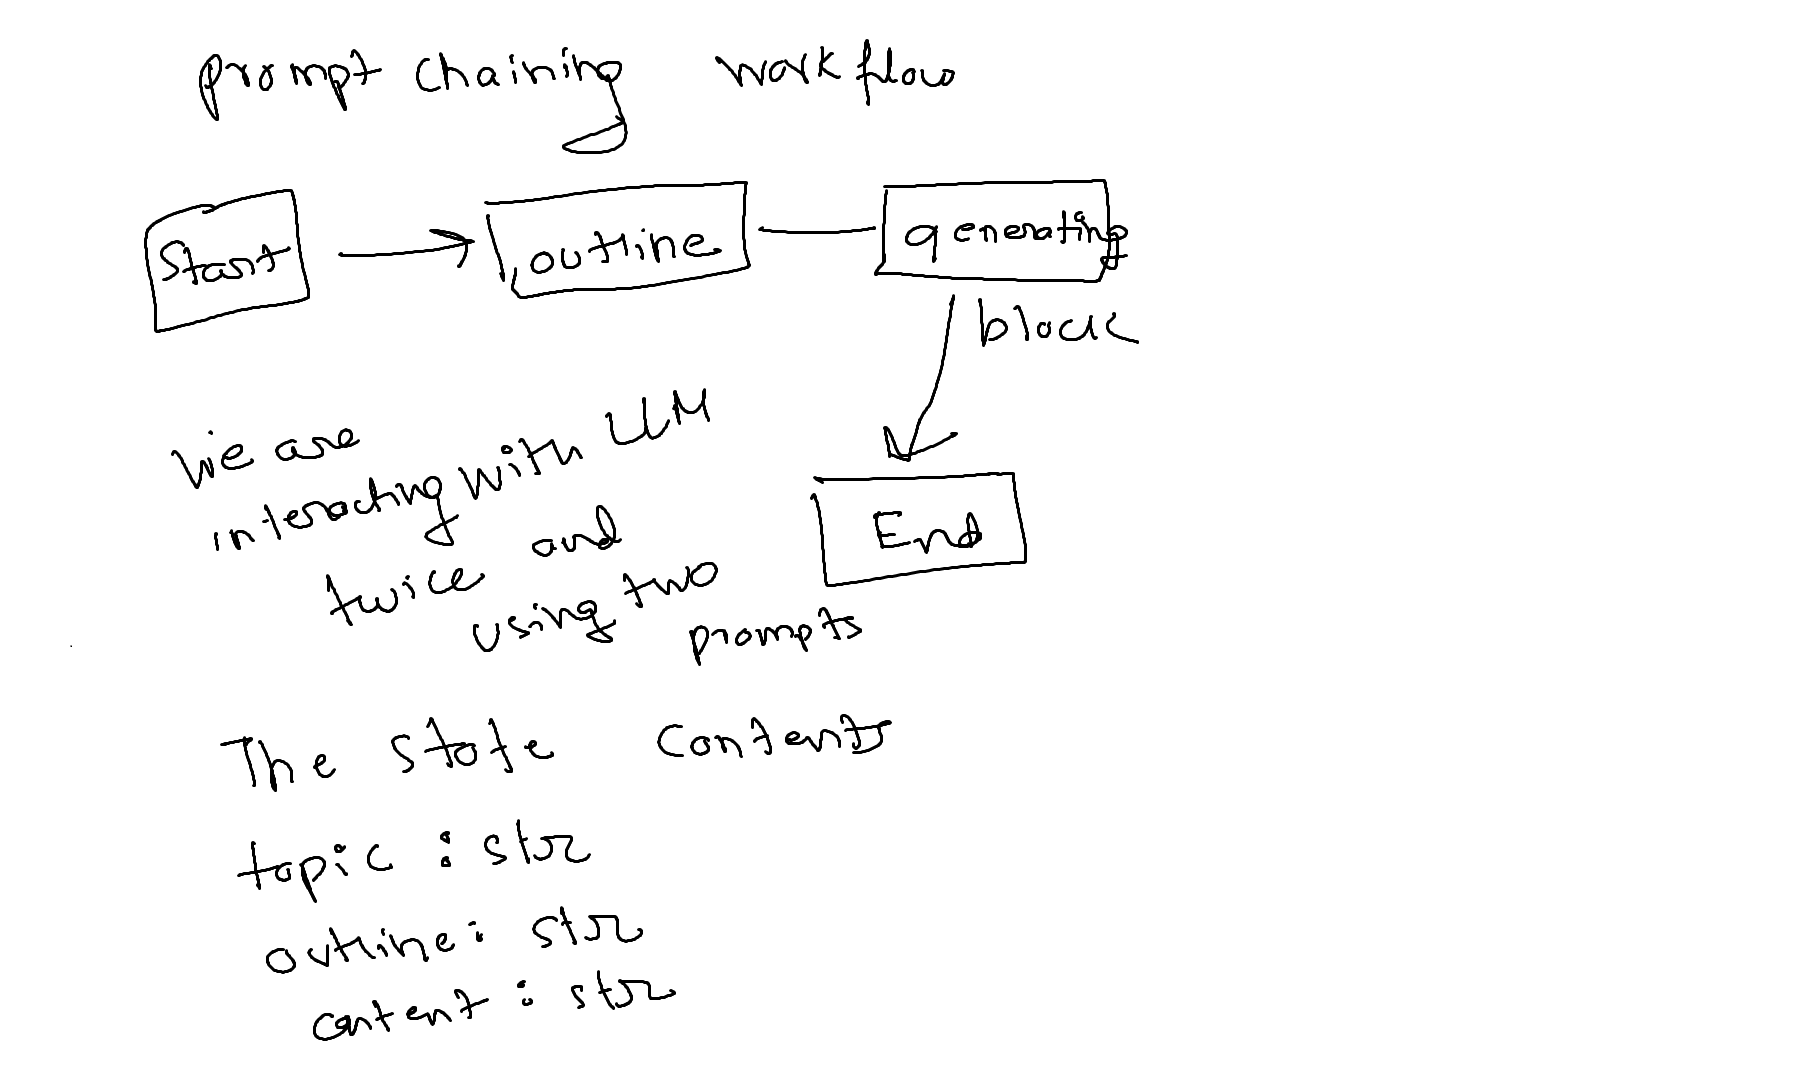 prompt chaining workflow
Start
outline
generating
block
End
We are
interacting with LLM
twice and
using two
prompts
The state contents
topic : str
outline : str
content : str